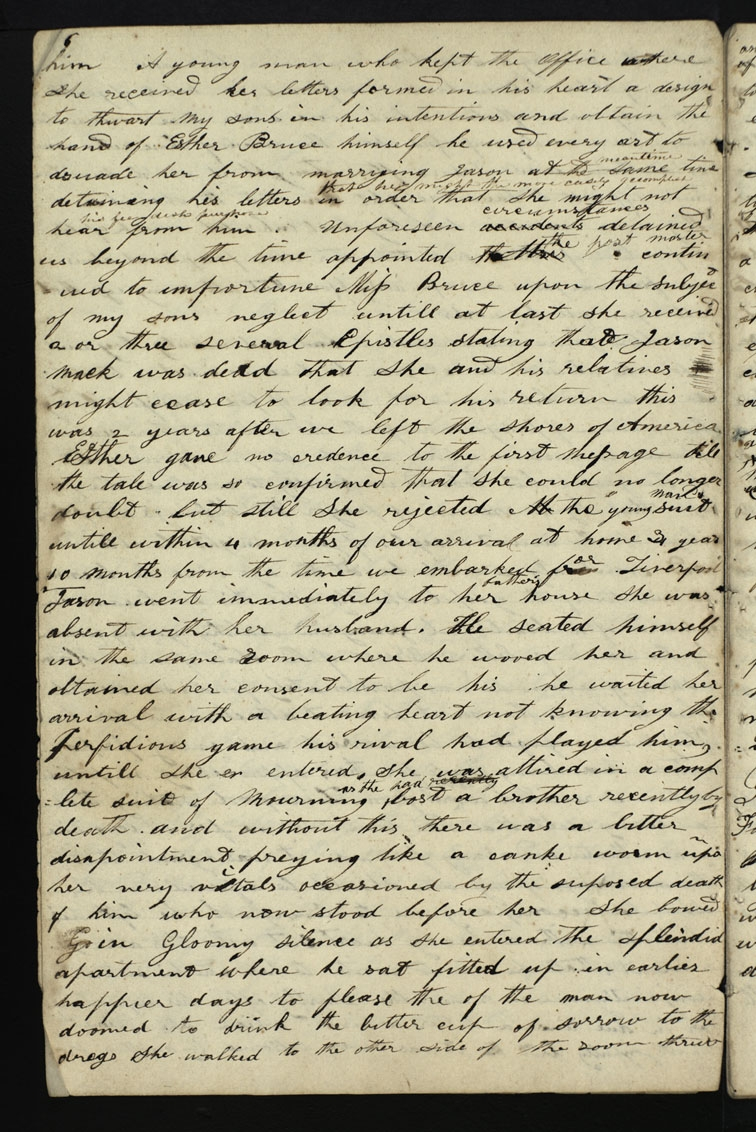 6
him A young man who kept the office where
she received her letters formed in his heart a design
to thwart my sons in his intentions and obtain the
hand of Esther Bruce himself he used every art to
disuade her from marrying Jason at the same time
meantime
detaining his letters in order that she might not
that he might the more easily accomplish
hear from him. Unforeseen accidents detained
circumstances
us beyond the time appointed the post master contin
ued to importune Miss Bruce upon the subjec
of my sons neglect untill at last she received
2 or three several Epistles stating that Jason
Mack was dead that she and his relatives
might cease to look for his return this
was 2 years after we left the shores of America
Esther gave no credence to the first message till
the tale was so confirmed that she could no longer
doubt. but still she rejected the young mans suit
untill within 4 months of our arrival at home 2 years
10 months from the time we embarked for Liverpool
Jason went immediately to her fathers house she was
absent with her husband. He seated himself
in the same room where he wooed her and
obtained her consent to be his he waited her
arrival with a beating heart not knowing the
perfidious game his rival had played him,
untill she er entered, she was attired in a comp
=lete suit of Mourning as she had recently lost a brother recently by
death. and without this there was a bitter
disapointment preying like a canke worm upo
her very vitals occasioned by the suposed death
of him who now stood before her She bowed
in Gloomy silence as she entered the splendid
apartment where he sat fitted up in earlier
happier days to please the of the man now
doomed to drink the bitter cup of sorrow to the
dregs she walked to the other side of the room threw